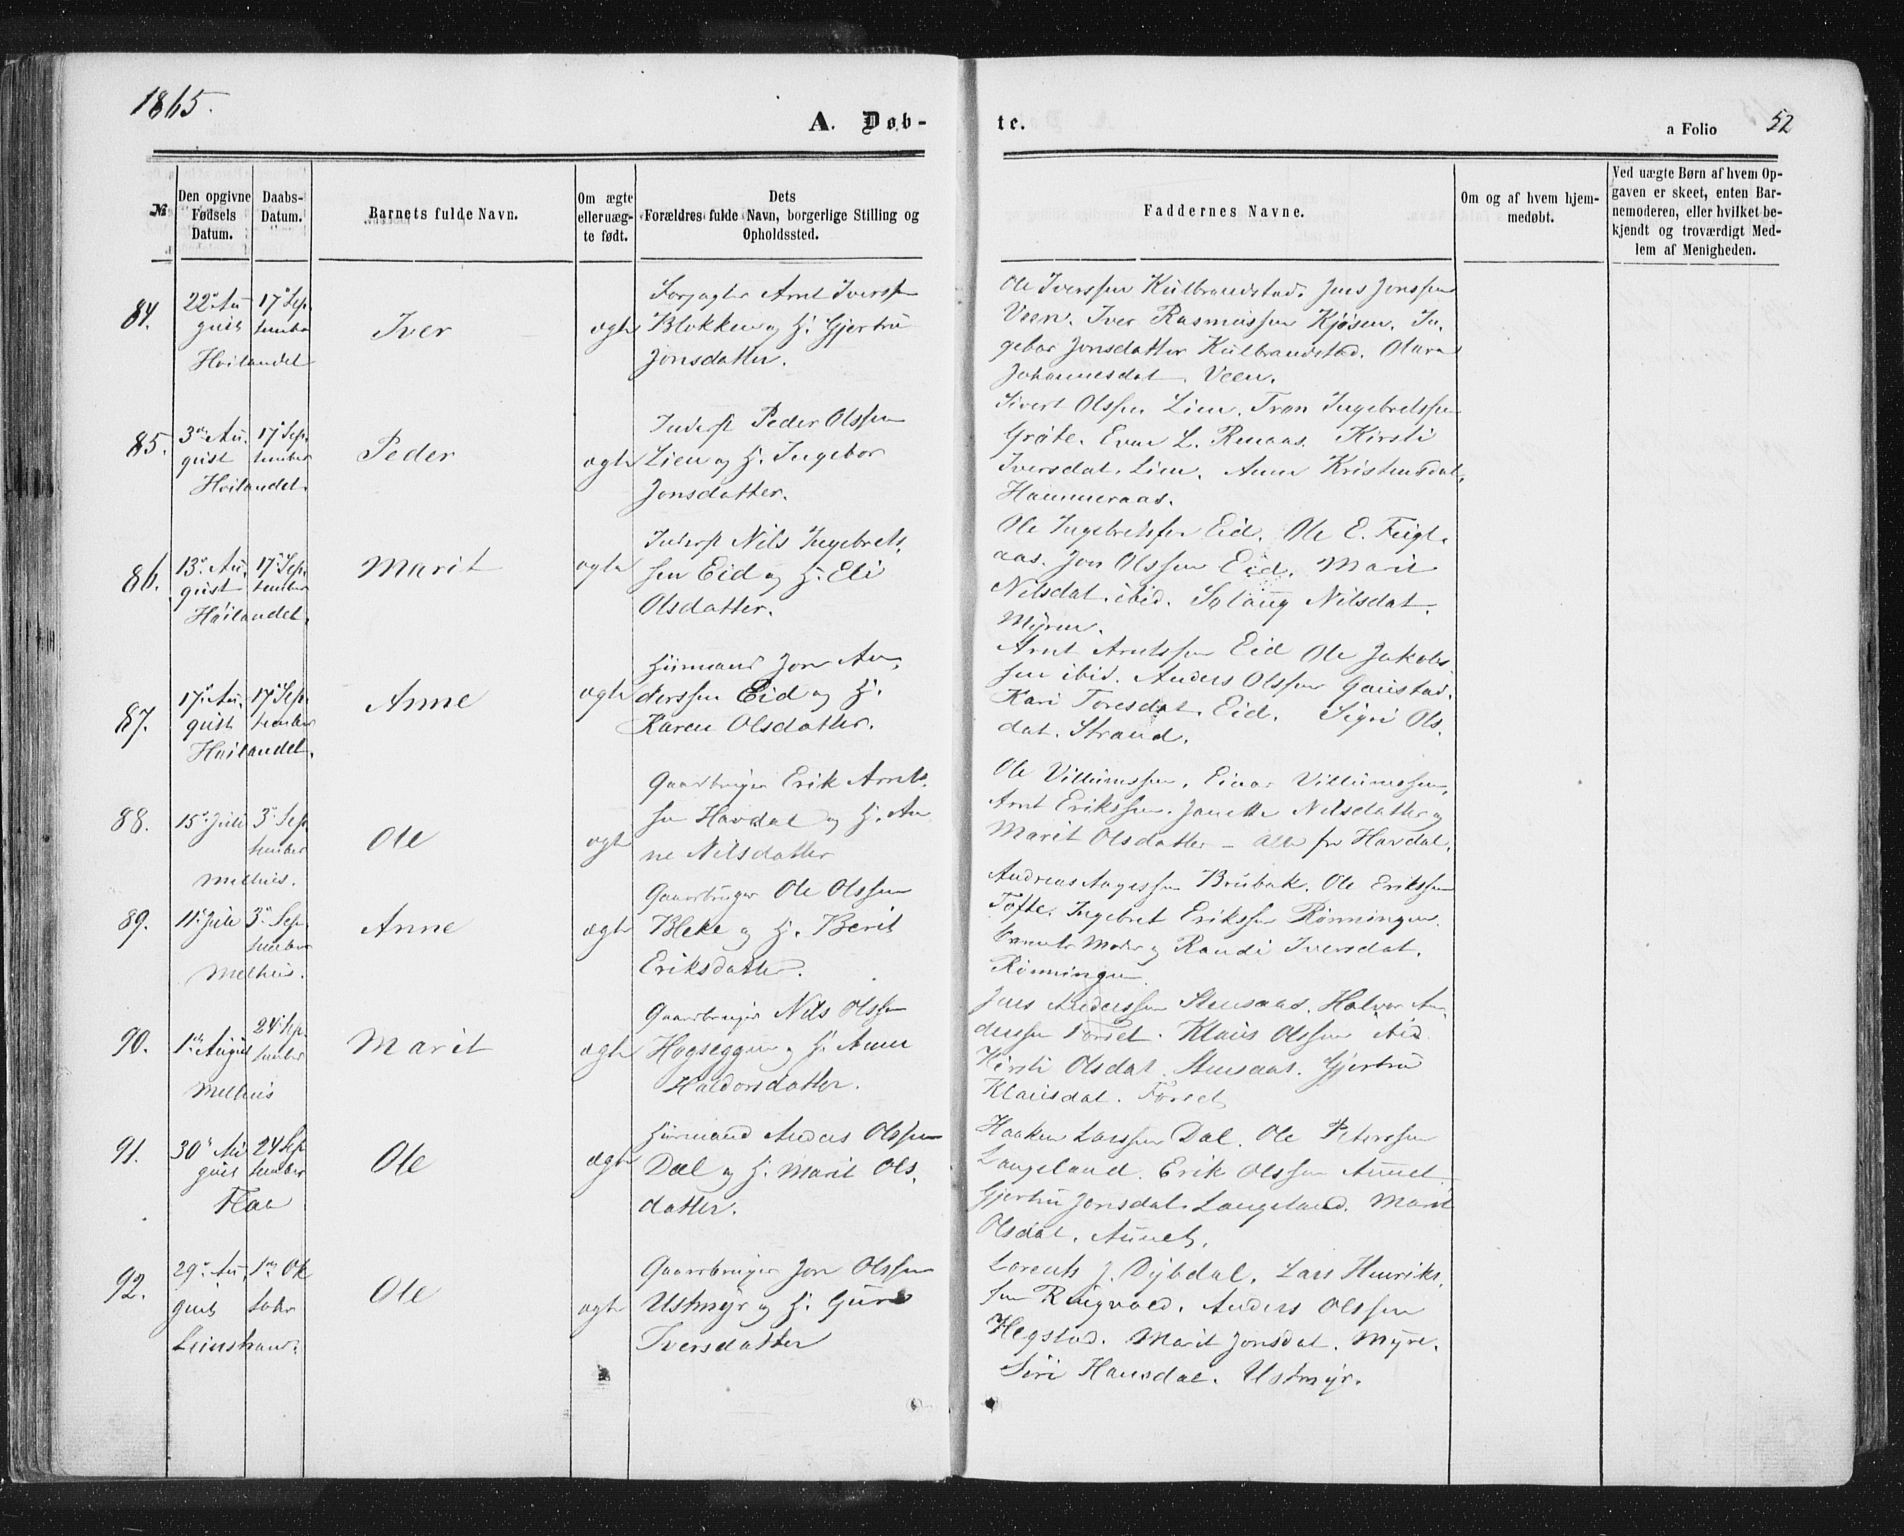 1865.
A. Døb-
te.
a Folio 52
№
Den opgivne Fødsels Datum.
Daabs-Datum.
Barnets fulde Navn.
Om ægte eller uæg-te født.
Dets Forældres fulde Navn, borgerlige Stilling og Opholdssted.
Faddernes Navne.
Om og af hvem hjem-medøbt.
Ved uægte Børn af hvem Op-gaven er skeet, enten Bar-nemoderen, eller hvilket be-kjendt og troværdigt Med-lem af Menigheden.
84.
22de Au-
gust
17de Sep-
tember
Höilandet
Iver
ægte
Arnt Iverssen
Blokken og H. Gjertru
Jonsdatter.
Ole Iverssen Kulbrandstad. Jens Jonssen
Veen. Iver Rasmussen Kjösen. In-
gebor Jonsdatter Kulbrandstad. Olava
Johannesdat. Veen.
85.
3die Au-
gust
17de Sep-
tember
Höilandet.
Peder
ægte
Inderst Peder Olssen
Lien og H. Ingebor
Jonsdatter.
Sivert Olssen Lien. Tron Ingebretssen
Gröte. Even L. Renaas. Kirsti
Iversdat. Lien. Anne Kristensdat.
Hammeraas.
86.
13de Au-
gust
17de Sep-
tember
Höilandet.
Marit
ægte
Inderst Nils Ingebrets-
sen Eid og H. Eli
Olsdatter.
Ole Ingebretssen Eid. Ole E. Feigl-
aas. Jon Olssen Eid. Marit
Nilsdat. ibid. Solaug Nilsdat.
Myren.
87.
17de Au-
gust
17de Sep-
tember
Höilandet.
Anne
ægte
Huusmand Jon An-
derssen Eid og H.
Karen Olsdatter.
Arnt Arntssen Eid Ole Jakobs-
sen ibid. Anders Olssen Gaustad.
Kari Toresdat. Eid. Sigri Ols-
dat. Strand.
88.
15de Juli
3die Sep-
tember
Melhus.
Ole
ægte
Gaardbruger Erik Arnts-
sen Havdal og H. An-
ne Nilsdatter
Ole Villumssen, Einar Villumssen,
Arnt Erikssen. Janette Nilsdatter og
Marit Olsdatter – alle fra Havdal.
89.
11te Juli
3die Sep-
tember
Melhus.
Anne
ægte
Gaardbruger Ole Olssen
Bleke og H. Berit
Eriksdatter.
Andreas Aagessen Brubak. Ole Erikssen
Tofte. Ingebret Erikssen Rönningen.
Barnets Moder og Randi Iversdat.
Rönningen.
90.
1ste August
24de Sep-
tember
Melhus
Marit
ægte
Gaardbruger Nils Olssen
Hogseggen og H. Anne
Haldorsdatter.
Jens Anderssen Stensaas. Halvor An-
derssen Forset. Klaus Olssen
Kirsti Olsdat. Stensaas. Gjertru
Klausdat. Forset
91.
30te Au-
gust
24de Sep-
tember
Flaa
Ole
ægte
Huusmand Anders Olssen
Dal og H. Marit Ols-
datter.
Haaken Larssen Dal. Ole Peterssen
Langeland. Erik Olssen Aunet
Gjertru Jonsdat. Langeland. Marit
Olsdat. Aunet.
92.
29de Au-
gust
1ste Ok-
tober
Leinstrand.
Ole
ægte
Gaardbruger Jon Olssen
Ustmyr og H. Guro
Iversdatter
Lorents J. Dybdal. Lars Henriks-
sen Ringvold. Anders Olssen
Hegstad. Marit Jonsdat. Myre.
Siri Hansdat. Ustmyr.